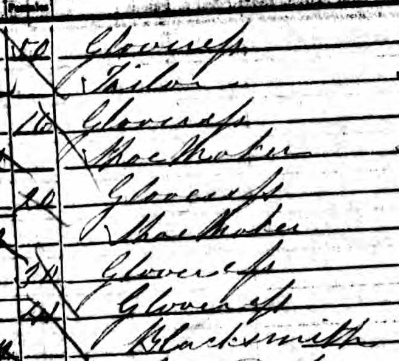 Females
50 Gloveress
Tailor
10 Gloveress
Shoe Maker
20 Gloveress
Shoe Maker
30 Gloveress
Gloveress
Blacksmith